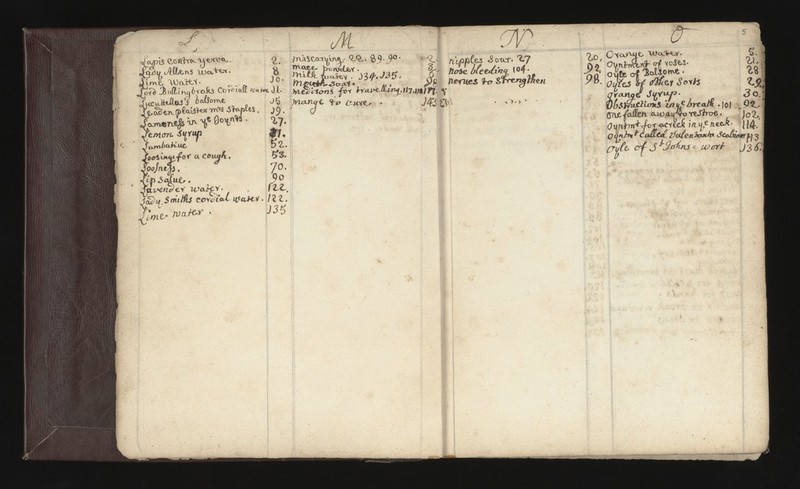 L
Lapis contra yerva. 2.
Lady Allens water. 8
Lime Water. 10.
Lord Bullingbroks Cordiall water 11.
Lucatellas balsome
Leaden plaister mrs Staples. 19.
Lameness in ye Joynts. 27.
Lemon Syrup 31.
Lambative 52.
Loosings for a cough. 53.
Loosness. 70.
Lip Salve. 90
Lavender water. 122.
Lady Smiths cordial water. 122.
Lime water. 135
M
miscarying 22. 89. 90. 2
mace powder.
milk water. 134. 135.
Mouth Soar.
medisons for travelling. 117.
mange to cure. 143
N
nipples Soar. 27 20.
nose bleeding 104. 92
nerves to Strengthen 98.
O
5
Orange water. 5.
Oyntment of roses. 21.
Oyle of Balsome. 28
Oyles of other Sorts 29
Orange Syrup. 30.
Obstructions in ye breath. 101. 92
One fallen away to restroe. 102.
Oyntmt for a crick in ye neck. 114.
Oyntmt called Valentonia Scabiosa 113
Oyle of St Johns wort 136.